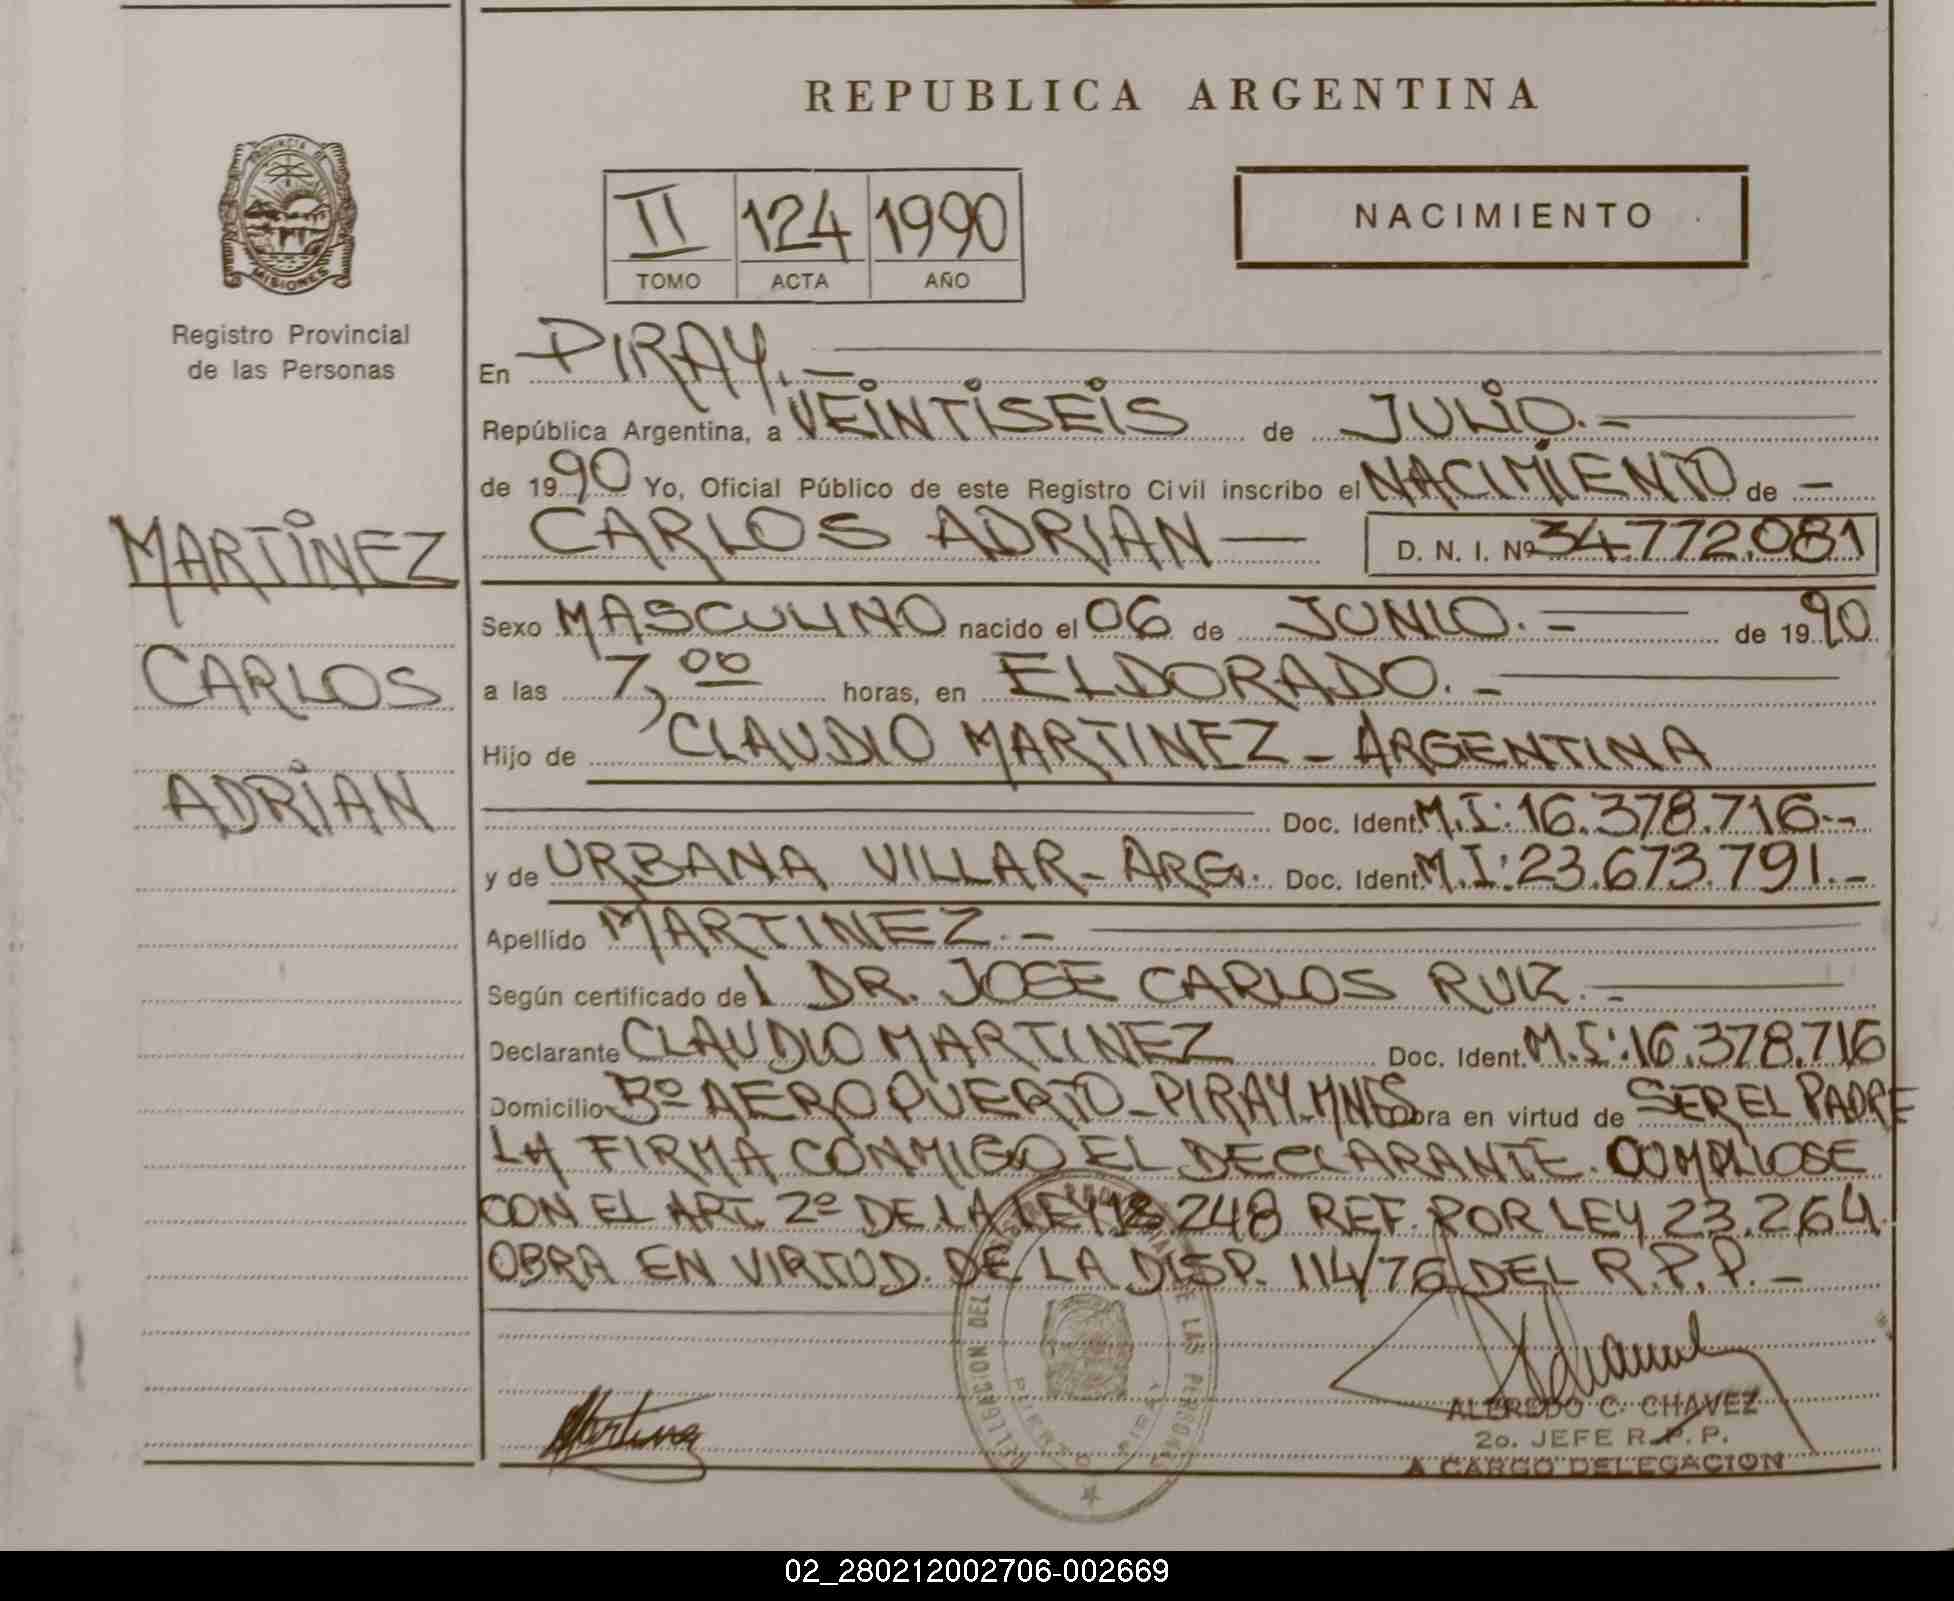 REPUBLICA ARGENTINA
PROVINCIA DE
MISIONES
Registro Provincial
de las Personas
II 124 1990
TOMO ACTA AÑO
NACIMIENTO
MARTINEZ
CARLOS
ADRIAN
En PIRAY.-
República Argentina, a VEINTISEIS de JULIO.-
de 1990 Yo, Oficial Público de este Registro Civil inscribo el NACIMIENTO de -
CARLOS ADRIAN — D. N. I. Nº 34.772.081
Sexo MASCULINO nacido el 06 de JUNIO.- de 1990
a las 7,00 horas, en ELDORADO.-
Hijo de CLAUDIO MARTINEZ - ARGENTINA
Doc. Ident. M.I: 16.378.716.-
y de URBANA VILLAR - ARG. Doc. Ident. M.I: 23.673.791.-
Apellido MARTINEZ.-
Según certificado del DR. JOSE CARLOS RUIZ.-
Declarante CLAUDIO MARTINEZ Doc. Ident. M.I: 16.378.716
Domicilio Bº AEROPUERTO - PIRAY - MNES Obra en virtud de SER EL PADRE
LA FIRMA CONMIGO EL DECLARANTE. COMPLIOSE
CON EL ART. 2º DE LA LEY 18.248 REF. POR LEY 23.264.
OBRA EN VIRTUD. DE LA DISP. 114/76 DEL R.P.P.-
DELEGACION DEL DE LAS PERSONAS
ALFREDO C. CHAVEZ
2o. JEFE R.P.P.
A CARGO DELEGACION
02_280212002706-002669